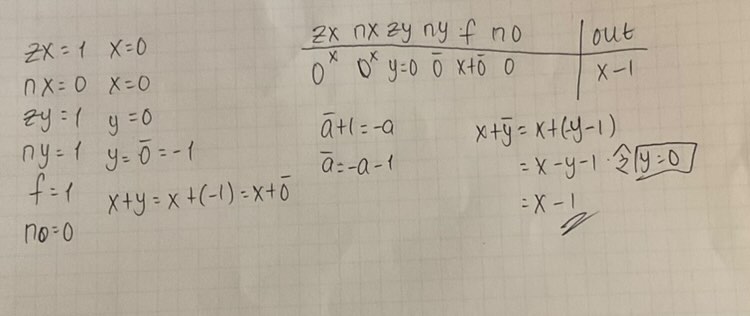 zx=1 x=0
nx=0 x=0
zy=1 y=0
ny=1 y=0̄=-1
f=1 x+y=x+(-1)=x+0̄
no=0
zx nx zy ny f no out
0ˣ 0ˣ y=0 0̄ x+0̄ 0 x-1
ā+1=-a
ā=-a-1
x+ȳ=x+(-y-1)
=x-y-1 令 y=0
=x-1